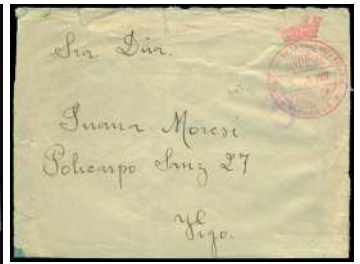 Sra Dña.
Juana Moresi
Policarpo Sanz 27
Vigo.